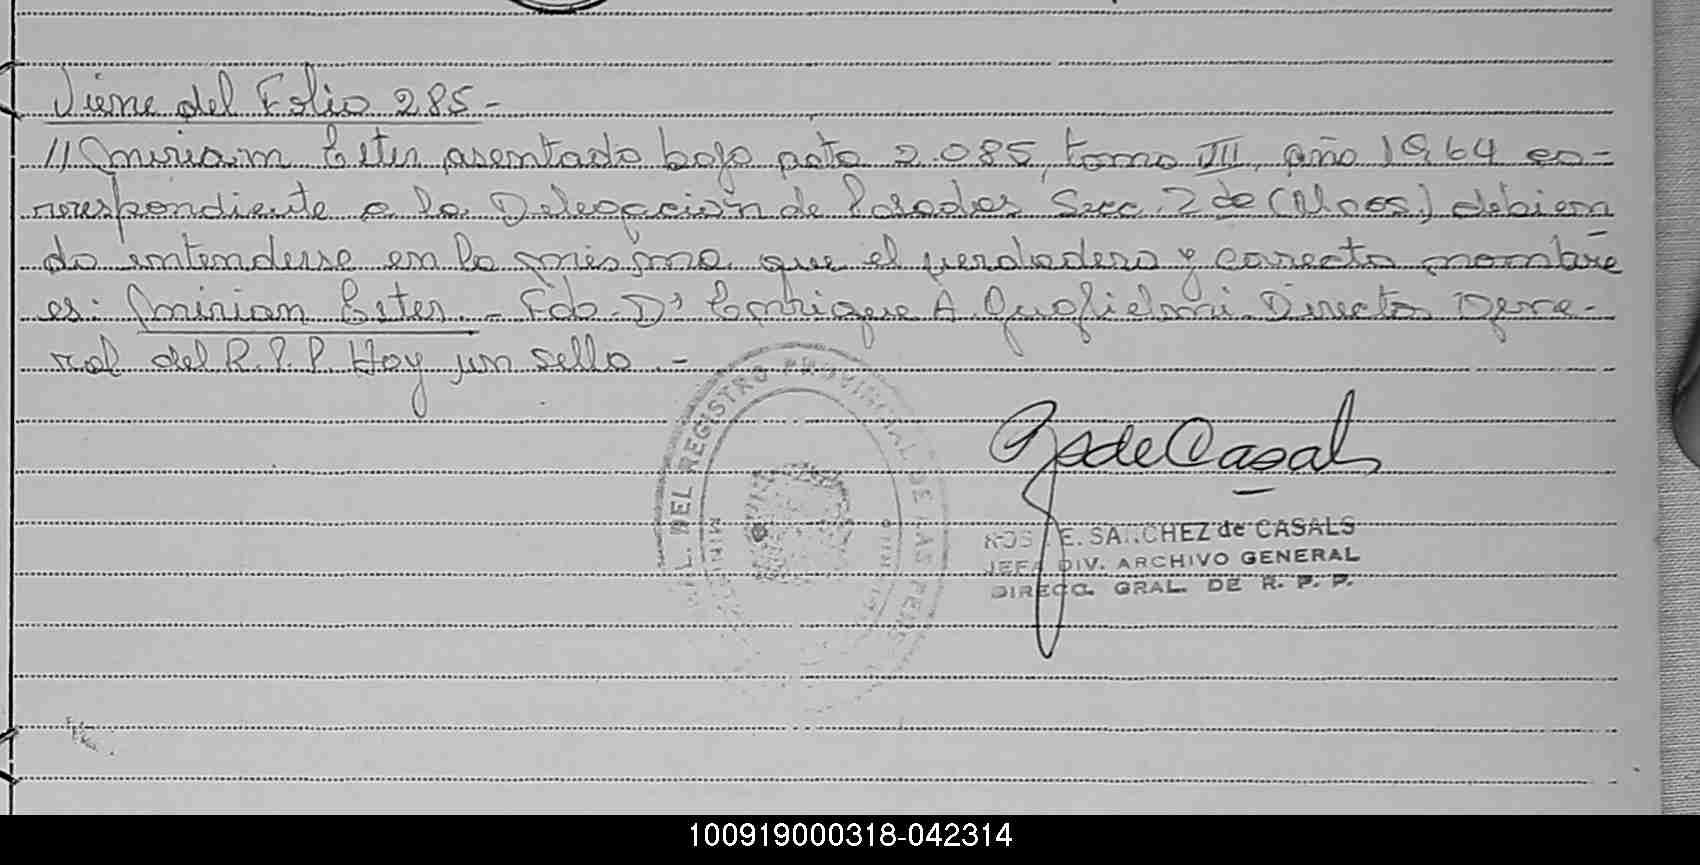 Viene del Folio 285-
//miriam Ester asentado bajo acta 2.085, tomo III, año 1964 co-
rrespondiente a la Delegación de Posadas Secc. 2 de (Mnes.) debien
do entenderse en la misma que el verdadero y correcto nombre
es: Mirian Ester.- Fdo. Dr Enrique A. Guglielmi. Director Gene-
ral del R.P.P. Hay un sello.-
DEL REGISTRO PROVINCIAL DE LAS PERS
GdeCasals
E. SANCHEZ de CASALS
JEFA DIV. ARCHIVO GENERAL
DIRECC. GRAL. DE R. P. P.
100919000318-042314